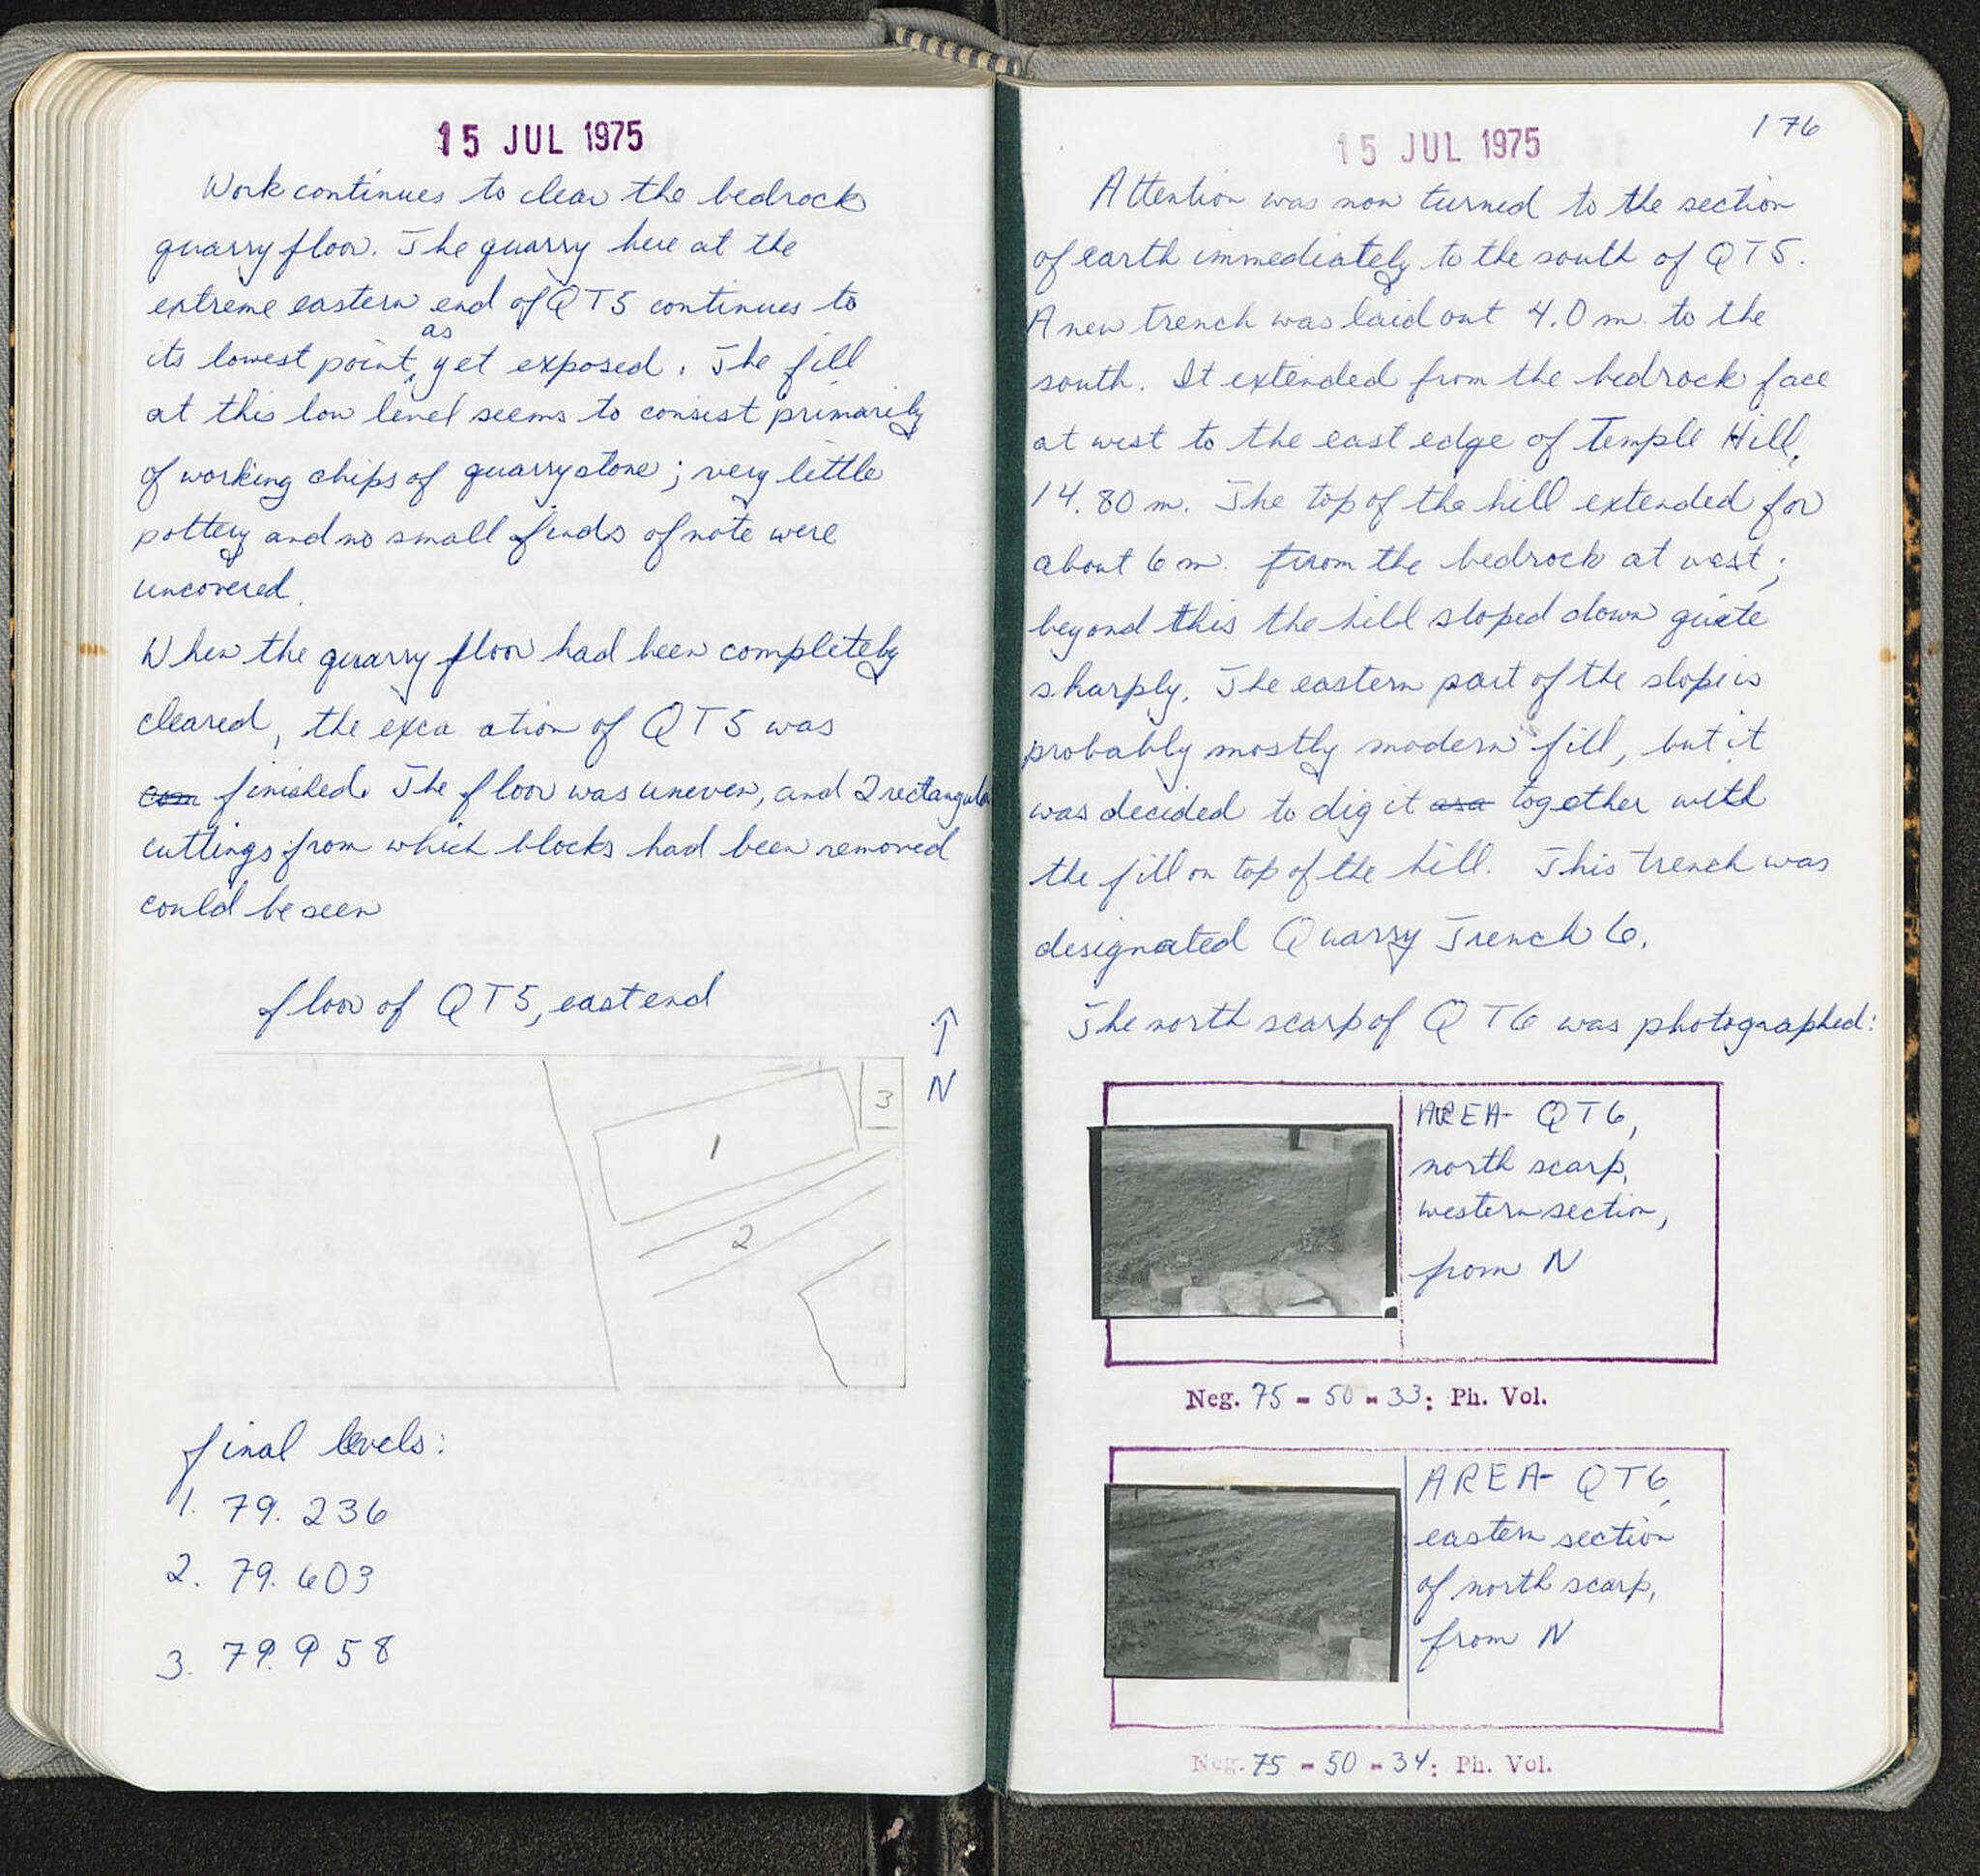 15 JUL 1975
Work continues to clear the bedrock
quarry floor. The quarry here at the
extreme eastern end of QT5 continues to
as
its lowest point, yet exposed. The fill
at this low level seems to consist primarily
of working chips of quarrystone; very little
pottery and no small finds of note were
uncovered.
When the quarry floor had been completely
cleared, the exca ation of QT5 was
com finished. The floor was uneven, and 2 rectangular
cuttings from which blocks had been removed
could be seen
floor of QT5, east end
N
1
2
3
final levels:
1. 79.236
2. 79.603
3. 79.958
176
15 JUL 1975
Attention was now turned to the section
of earth immediately to the south of QT5.
A new trench was laid out 4.0 m. to the
south. It extended from the bedrock face
at west to the east edge of Temple Hill,
14.80 m. The top of the hill extended for
about 6 m. from the bedrock at west;
beyond this the hill sloped down quite
sharply. The eastern part of the slope is
probably mostly modern fill, but it
was decided to dig it as a together with
the fill on top of the hill. This trench was
designated Quarry Trench 6.
The north scarp of QT6 was photographed:
AREA- QT6,
north scarp,
western section,
from N
Neg. 75 - 50 - 33: Ph. Vol.
AREA- QT6,
eastern section
of north scarp,
from N
Neg. 75 - 50 - 34: Ph. Vol.